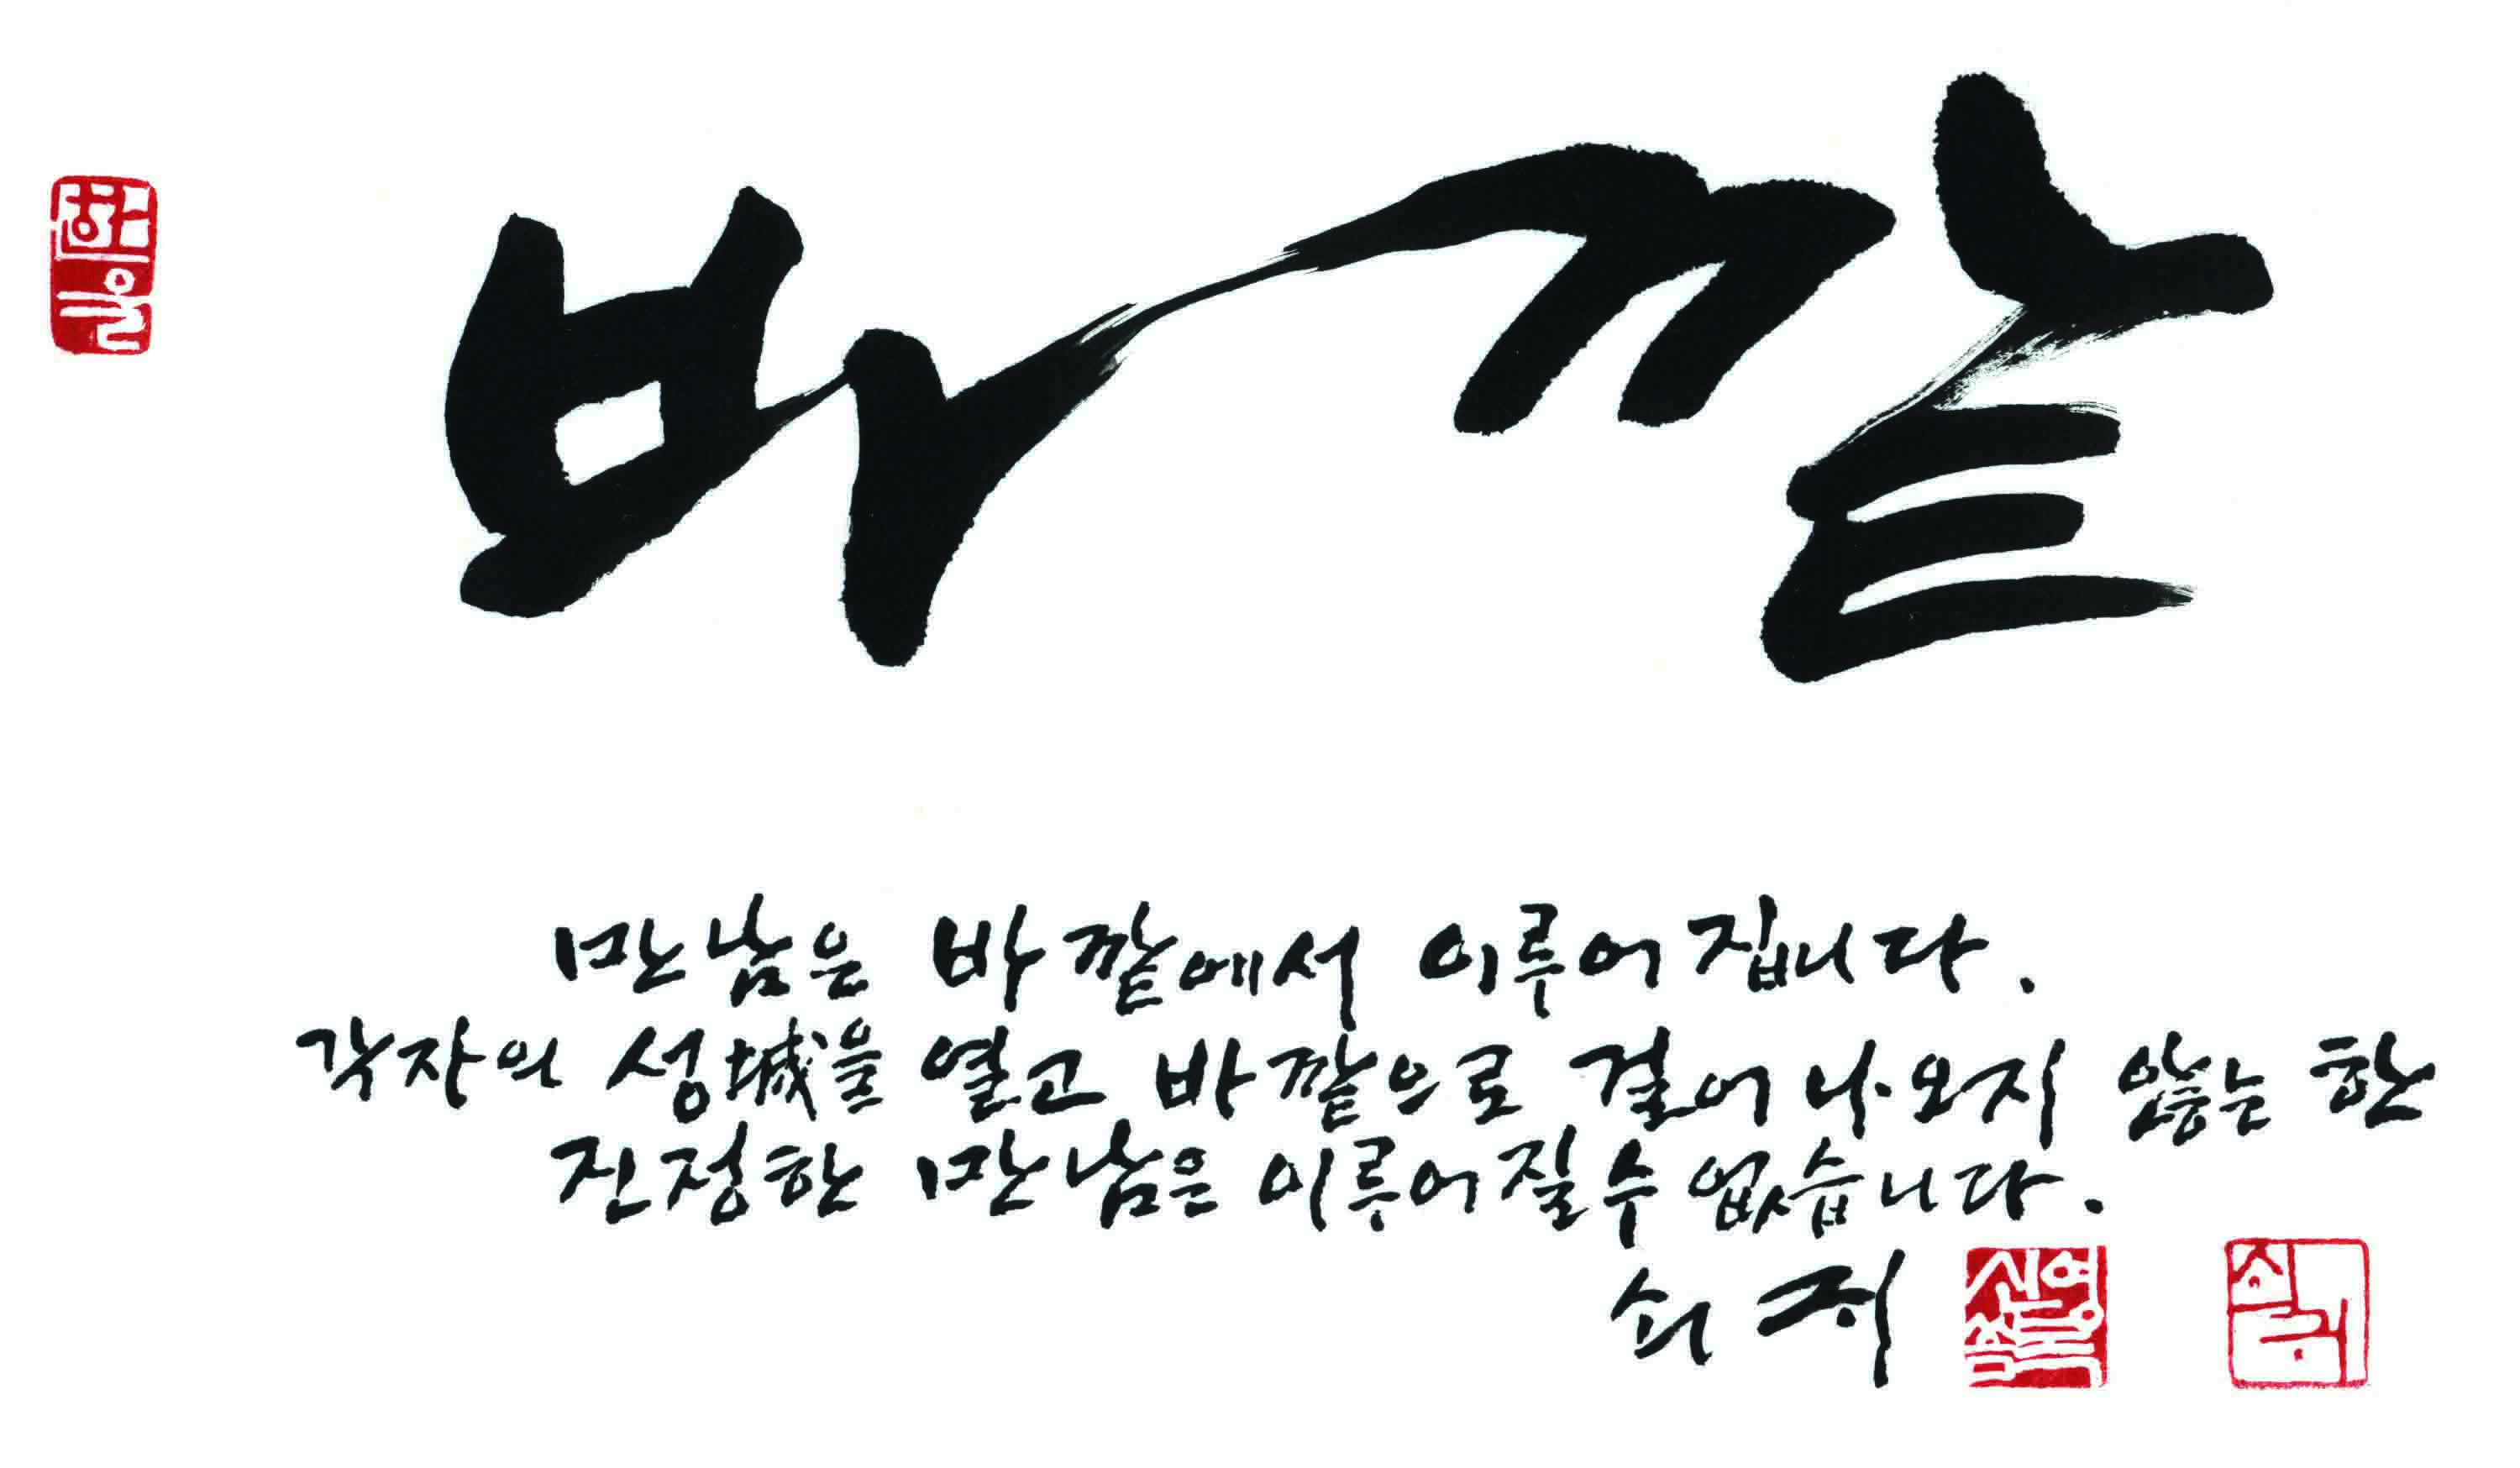 한울
바깥
만남은 바깥에서 이루어집니다.
각자의 성城을 열고 바깥으로 걸어나오지 않는 한
진정한 만남은 이루어질 수 없습니다.
쇠귀
신영복
쇠귀